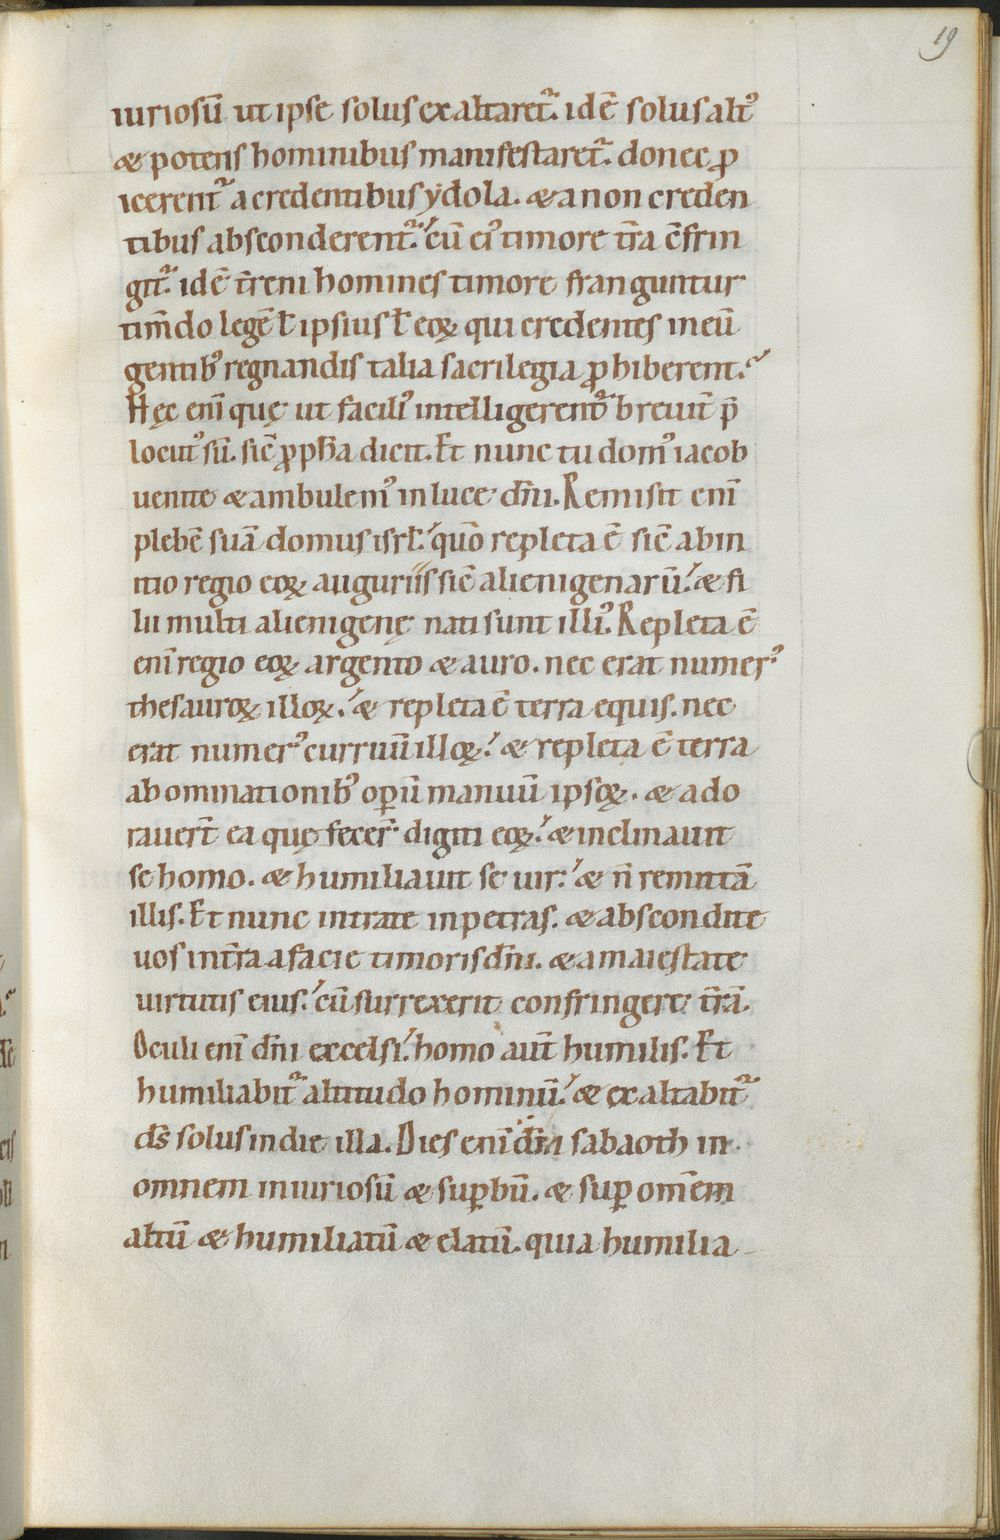 19
iuriosū ut ipse solus exaltaret᷑. idē solus alt᾽
& potens hominibus manifestaret᷑. donec ꝓ
icerent᷑ a credentibus ydola. & a non creden
tibus absconderent᷑. cū ei᾽ timore t̄ra c̄frin
git᷑. idē t̄reni homines timore franguntur
tim̄do legē ł ipsius ł eoꝝ qui credentes in eū
gentib᾽ regnandis talia sacrilegia ꝓhiberent.
Hęc enī quę ut facili᾽ intelligerent᷑ breuit̄ p̄
locut᾽ sū. sic̄ ꝓph̄a dicit. Et nunc tu dom᾽ iacob
uenite & ambulem᾽ in luce dn̄i. Remisit enī
plebē suā domus isrł. quō repleta ē sic̄ ab in
itio regio eoꝝ auguriis sic̄ alienigenarū. & fi
lii multi alienigenę nati sunt illi᾽. Repleta ē
enī regio eoꝝ argento & auro. nec erat numer᾽
thesauroꝝ illoꝝ. & repleta ē terra equis. nec
erat numer᾽ curruū illoꝝ. & repleta ē terra
abominationib᾽ oꝑū manuū ipsoꝝ. & ado
rauer̄t ea quę fecer̄ digiti eoꝝ. & inclinauit
se homo. & humiliauit se uir. & n̄ remittā
illis. Et nunc intrate in petras. & abscondite
uos int̄ra a facie timoris dn̄i. & a maiestate
uirtutis eius. cū surrexerit confringere t̄rā.
Oculi enī dn̄i excelsi. homo aut̄ humilis. Et
humiliabit᷑ altitudo hominū. & exaltabit᷑
dс̄ solus in die illa. Dies enī dn̄i sabaoth in
omnem iniuriosū & suꝑbū. & suꝑ om̄em
altū & humiliatū & elatū. quia humilia